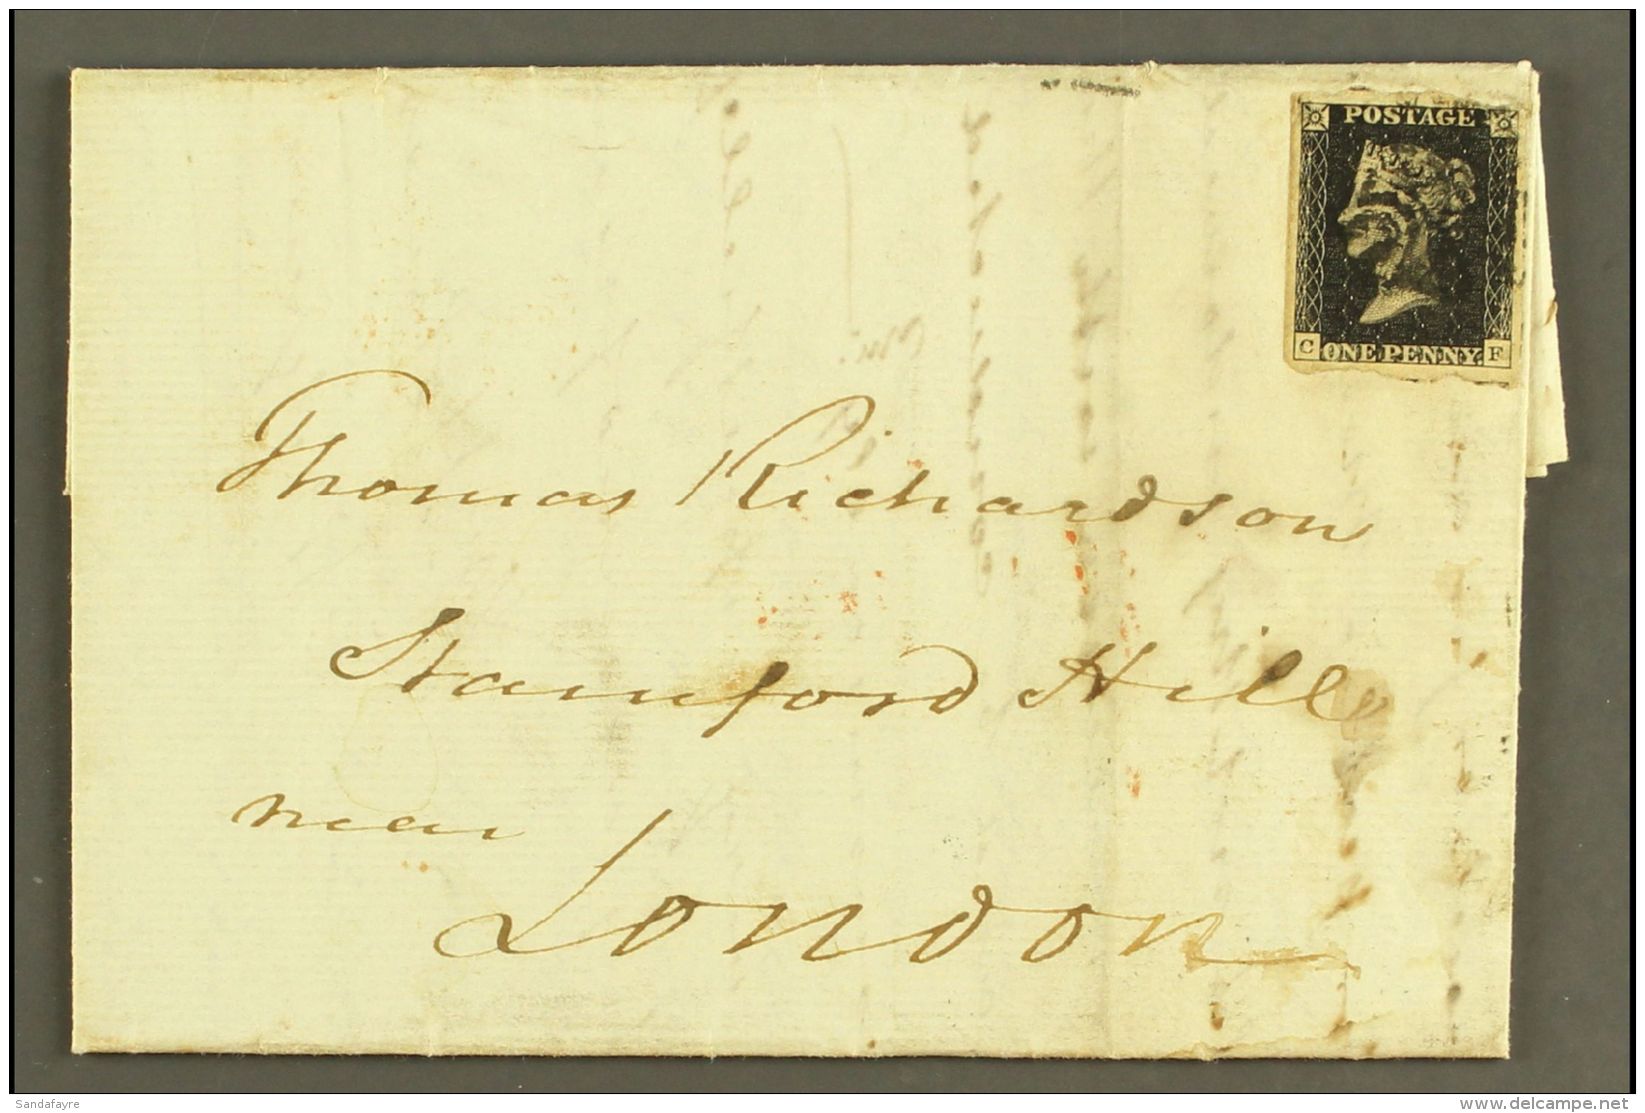 POSTAGE
C ONE PENNY. F
Thomas Richardson
Stamford Hill
near
London
Sandafayre
www.delcampe.net